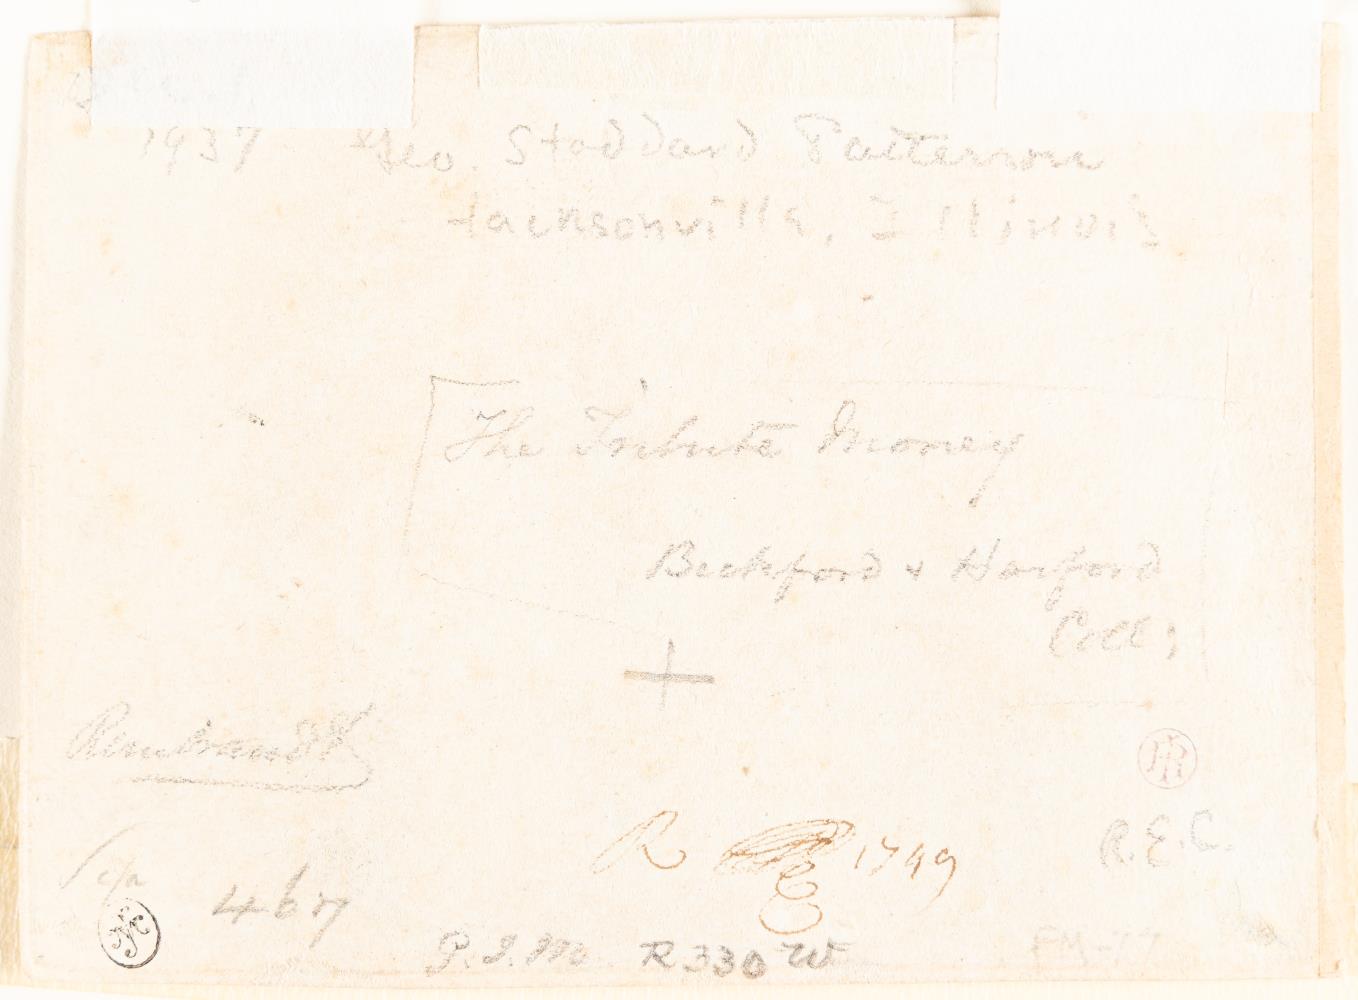 1937 Geo. Stoddard Patterson
Jacksonville, Illinois
The Tribute Money
Beckford & Harford
Coll;
Rembrandt
R 1749
R.E.C.
467
P.I.M R330 W
FM-77